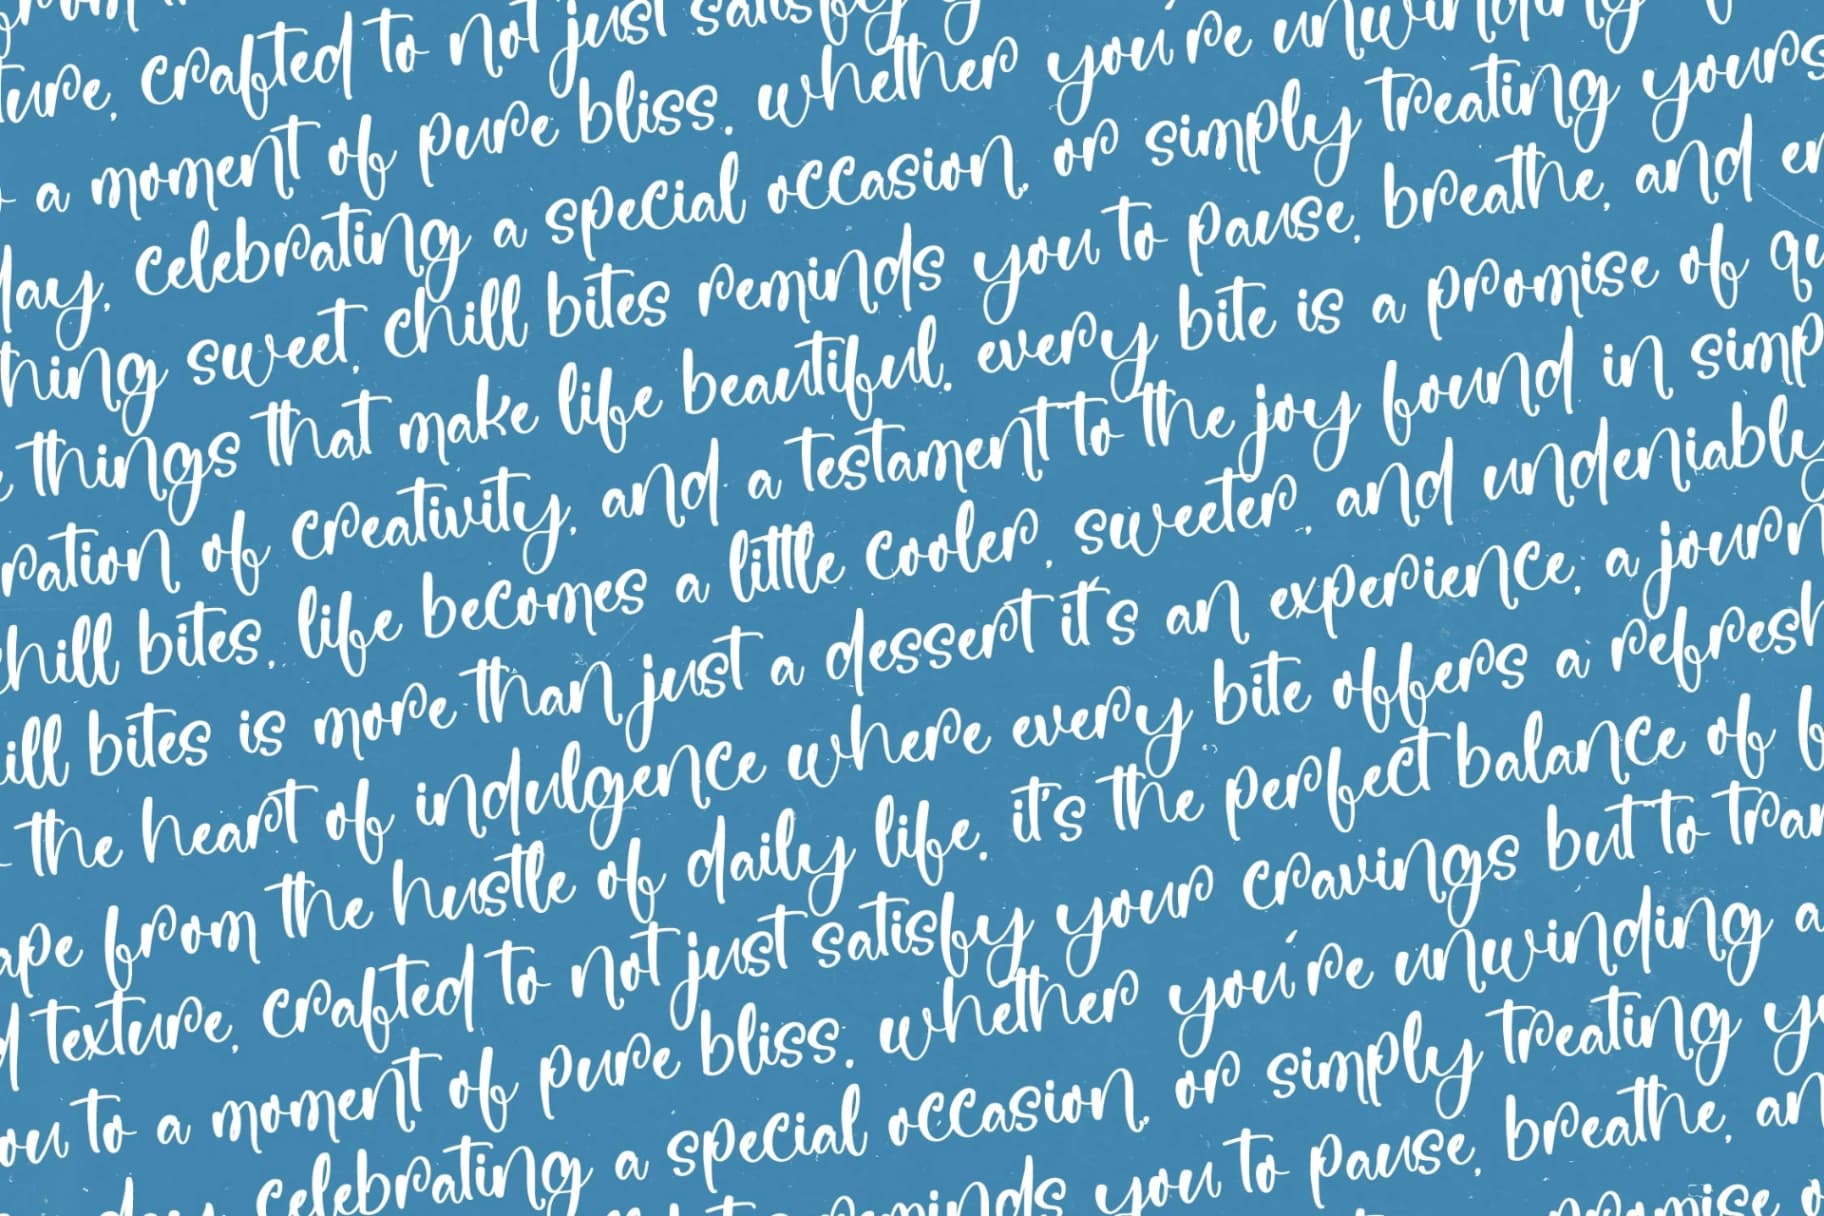 from
ture, crafted to not just satisfy
a moment of pure bliss. whether you're unwinding
day, celebrating a special occasion, or simply treating yours
thing sweet, chill bites reminds you to pause, breathe, and en
things that make life beautiful. every bite is a promise of qu
ration of creativity, and a testament to the joy found in simp
chill bites, life becomes a little cooler, sweeter, and undeniably
ill bites is more than just a dessert it's an experience, a journ
the heart of indulgence where every bite offers a refresh
ape from the hustle of daily life. it's the perfect balance of f
d texture, crafted to not just satisfy your cravings but to tran
ou to a moment of pure bliss. whether you're unwinding a
day, celebrating a special occasion, or simply treating yo
reminds you to pause, breathe, an
promise o